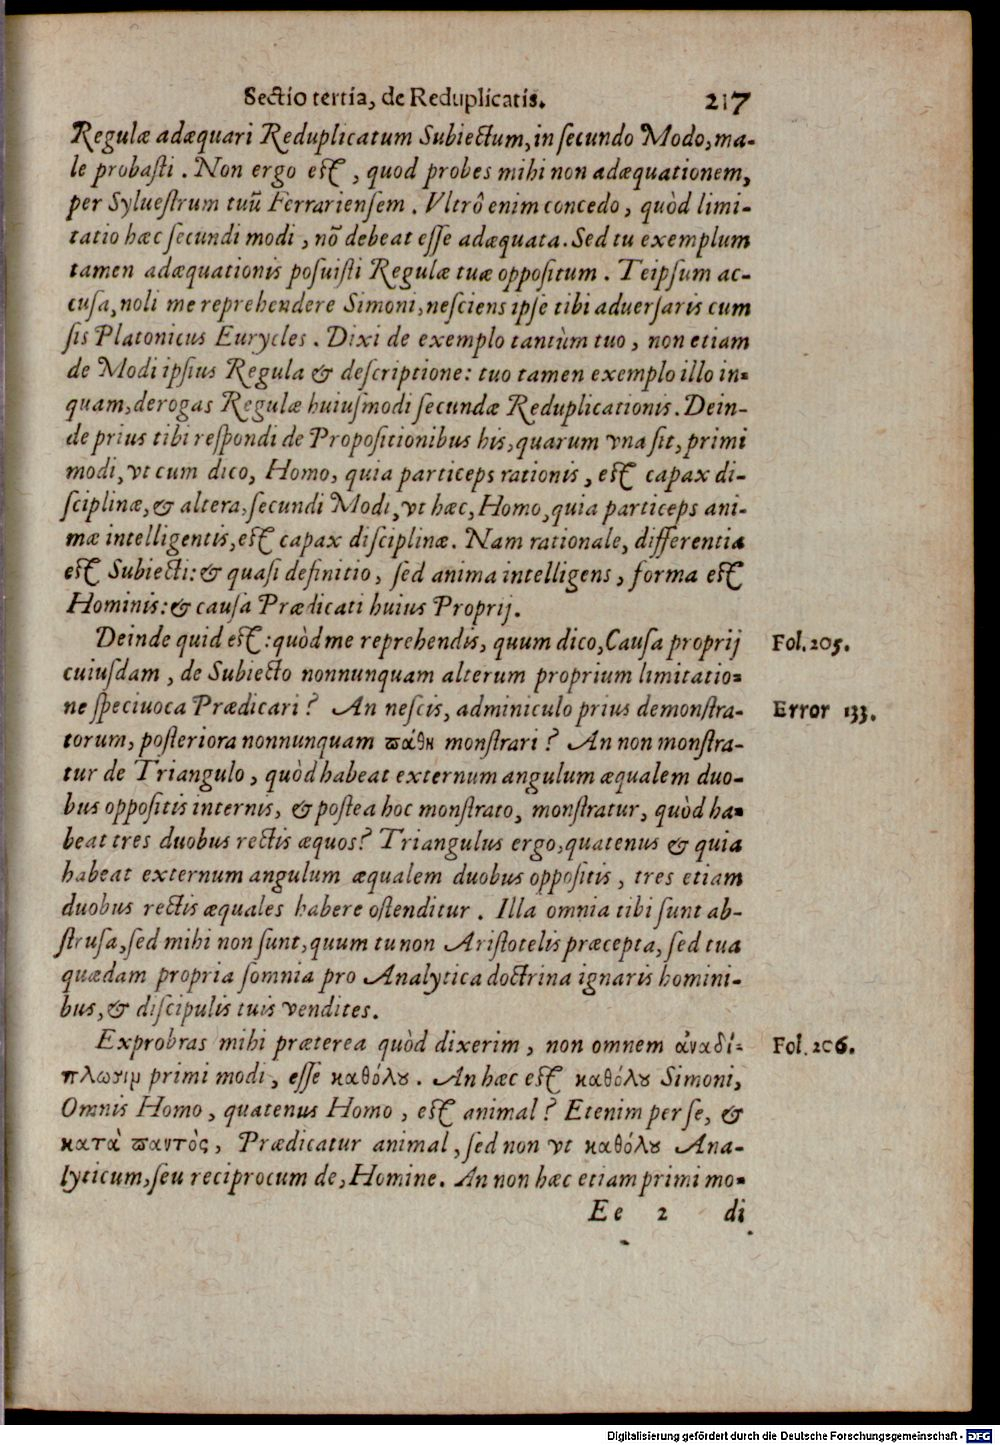 Sectio tertia, de Reduplicatis. 217
Regulæ adæquari Reduplicatum Subiectum, in secundo Modo, ma-
le probasti. Non ergo est, quod probes mihi non adæquationem,
per Syluestrum tuũ Ferrariensem. Vltrô enim concedo, quòd limi-
tatio hæc secundi modi, nõ debeat esse adæquata. Sed tu exemplum
tamen adæquationis posuisti Regulæ tuæ oppositum. Teipsum ac-
cusa, noli me reprehendere Simoni, nesciens ipse tibi aduersaris cum
sis Platonicus Eurycles. Dixi de exemplo tantùm tuo, non etiam
de Modi ipsius Regula & descriptione: tuo tamen exemplo illo in-
quam, derogas Regulæ huiusmodi secundæ Reduplicationis. Dein-
de prius tibi respondi de Propositionibus his, quarum vna sit, primi
modi, vt cum dico, Homo, quia particeps rationis, est capax di-
sciplinæ, & altera, secundi Modi, vt hæc, Homo, quia particeps ani-
mæ intelligentis, est capax disciplinæ. Nam rationale, differentia
est Subiecti: & quasi definitio, sed anima intelligens, forma est
Hominis: & causa Prædicati huius Proprij.
Deinde quid est: quòd me reprehendis, quum dico, Causa proprij
Fol. 205.
cuiusdam, de Subiecto nonnunquam alterum proprium limitatio-
ne speciuoca Prædicari? An nescis, adminiculo prius demonstra-
Error 133.
torum, posteriora nonnunquam πάθη monstrari? An non monstra-
tur de Triangulo, quòd habeat externum angulum æqualem duo-
bus oppositis internis, & postea hoc monstrato, monstratur, quòd ha-
beat tres duobus rectis æquos? Triangulus ergo, quatenus & quia
habeat externum angulum æqualem duobus oppositis, tres etiam
duobus rectis æquales habere ostenditur. Illa omnia tibi sunt ab-
strusa, sed mihi non sunt, quum tu non Aristotelis præcepta, sed tua
quædam propria somnia pro Analytica doctrina ignaris homini-
bus, & discipulis tuis vendites.
Exprobras mihi præterea quòd dixerim, non omnem ἀναδί-
Fol. 206.
πλωσιμ primi modi, esse καθόλȣ. An hæc est καθόλȣ Simoni,
Omnis Homo, quatenus Homo, est animal? Etenim per se, &
κατὰ παντὸς, Prædicatur animal, sed non vt καθόλȣ Ana-
lyticum, seu reciprocum de, Homine. An non hæc etiam primi mo-
Ee 2 di
Digitalisierung gefördert durch die Deutsche Forschungsgemeinschaft - DFG